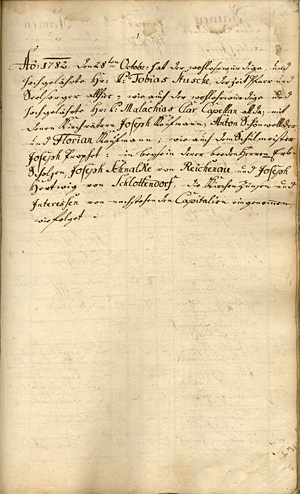 Ao: 1782. den 28ten Octobr: hat der wohlehrwürdige und
Hochgelährte Hr: P: Tobias Husche derzeit Pfarr und
Seelsorger allhier, wie auch der wohlehrwürdige und
Hochgelährte Hr: C: Malachias Clar Capellan allda, mit
denen Kirchvätern Joseph Kaufmann, Anton Schönwälder
und Florian Kaufmann, wie auch dem Schulmeister
Joseph Prophet, in beysein derer beeden Herren Erb
Scholzen, Joseph Schnalke von Reichenau, und Joseph
Hertwig von Schlottendorf, die Kirchen Zinsen und
Interessen von nachstehenden Capitalien eingenommen
wie folget